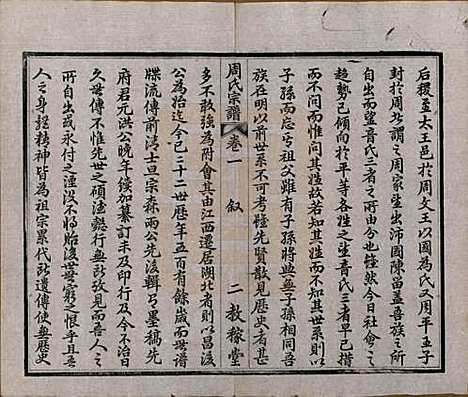 后稷至太王邑於周文王以國為氏又周平王子
封於周北謂之周家並出沛國陳留蓋吾族之所
自出而望音氏三者之所由分也雖然今日社會之
趨勢已傾向于平等各姓之望音氏三者早已措
而不問而惟問其性族故有祖父而無子孫世系則以
子孫而忘乎祖父雖有子孫將與無子孫等吾
族在明以前世系不可考惟先賢散見歷史者甚
周氏宗譜 卷一 敘 二 教稼堂
多不敢強為附會其由江西遷居湖北者則以昌浚
公為始迄今已三十二世歷年五百有餘歲而世譜
牒流傳前清士旦宗森兩公先後輯了墨稿先
府君元洪公晚年倏加纂訂未及付梓及今不治日
久世傳不惟先世之碩德懿行無以攷見而吾人之
所自出或永付之湮沒不將貽後世無窮之恨乎且吾
人之身體精神皆為祖宗累代所遺傳使無歷史